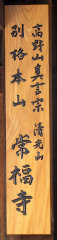 高野山真言宗 清光山
別格本山 常福寺